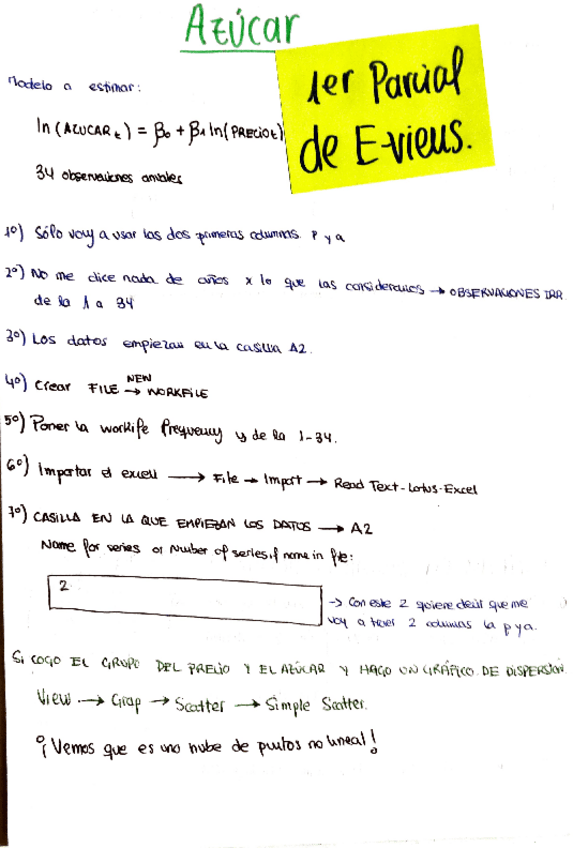 AZÚCAR
1er Parcial
de E-views.
Modelo a estimar:
ln(AZUCARt) = β0 + β1 ln(PRECIOt)
34 observaciones anuales
1º) Sólo voy a usar las dos primeras columnas. P y a
2º) No me dice nada de años x lo que las consideramos → OBSERVACIONES IRR
de la 1 a 34
3º) Los datos empiezan en la casilla A2.
4º) Crear FILE → NEW WORKFILE
5º) Poner la workife frequency y de la 1-34.
6º) Importar el excell → File → Import → Read Text-Lotus-Excel
7º) CASILLA EN LA QUE EMPIEZAN LOS DATOS → A2
Name for series or Number of series if name in file:
2
→ Con este 2 quiere decir que me
voy a traer 2 columnas la p y a.
Si COGO EL GRUPO DEL PRECIO Y EL AZÚCAR Y HAGO UN GRÁFICO DE DISPERSIÓN
View → Grap → Scatter → Simple Scatter.
¡Vemos que es una nube de puntos no lineal!